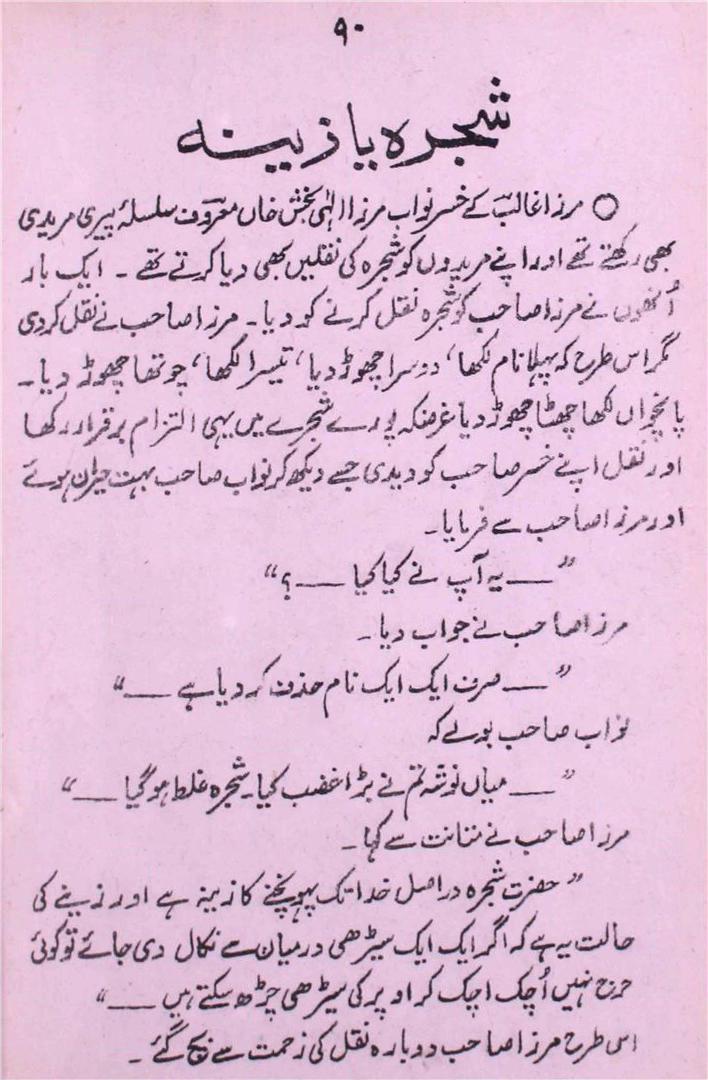 ۹۰
شجرہ یا زینہ
○ مرزا غالبؔ کے خسر نواب مرزا الٰہی بخش خاں معروفؔ سلسلۂ پیری مریدی
بھی رکھتے تھے اور اپنے مریدوں کو شجرہ کی نقلیں بھی دیا کرتے تھے ۔ ایک بار
اُنھوں نے مرزا صاحب کو شجرہ نقل کرنے کو دیا۔ مرزا صاحب نے نقل کر دی
مگر اس طرح کہ پہلا نام لکھا، دوسرا چھوڑ دیا، تیسرا لکھا، چوتھا چھوڑ دیا۔
پانچواں لکھا چھٹا چھوڑ دیا غرضکہ پورے شجرے میں یہی التزام برقرار رکھا
اور نقل اپنے خسر صاحب کو دیدی جسے دیکھ کر نواب صاحب بہت حیران ہوئے
اور مرزا صاحب سے فرمایا۔
”— یہ آپ نے کیا کیا —؟“
مرزا صاحب نے جواب دیا۔
”— صرف ایک ایک نام حذف کر دیا ہے —“
نواب صاحب بولے کہ
”— میاں نوشہ تم نے بڑا غضب کیا۔ شجرہ غلط ہو گیا —“
مرزا صاحب نے متانت سے کہا۔
” حضرت شجرہ دراصل خدا تک پہونچنے کا زینہ ہے اور زینے کی
حالت یہ ہے کہ اگر ایک ایک سیڑھی درمیان سے نکال دی جائے تو کوئی
حرج نہیں اُچک اچک کر اوپر کی سیڑھی چڑھ سکتے ہیں —“
اسی طرح مرزا صاحب دوبارہ نقل کی زحمت سے بچ گئے ۔